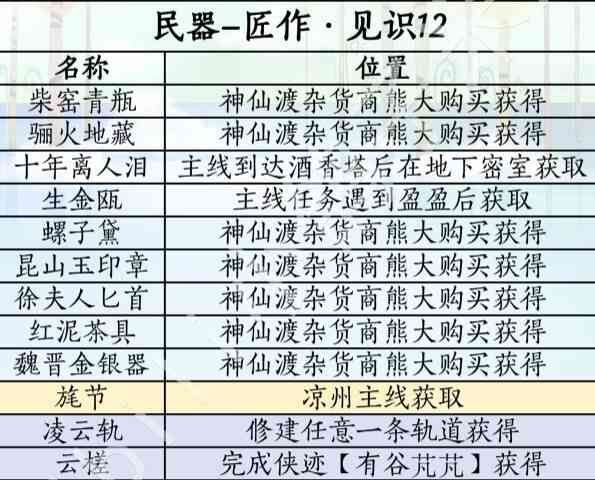 民器-匠作·见识12
名称 位置
柴窑青瓶 神仙渡杂货商熊大购买获得
骊火地藏 神仙渡杂货商熊大购买获得
十年离人泪 主线到达酒香塔后在地下密室获取
生金瓯 主线任务遇到盈盈后获取
螺子黛 神仙渡杂货商熊大购买获得
昆山玉印章 神仙渡杂货商熊大购买获得
徐夫人匕首 神仙渡杂货商熊大购买获得
红泥茶具 神仙渡杂货商熊大购买获得
魏晋金银器 神仙渡杂货商熊大购买获得
旄节 凉州主线获取
凌云轨 修建任意一条轨道获得
云槎 完成侠迹【有谷芃芃】获得